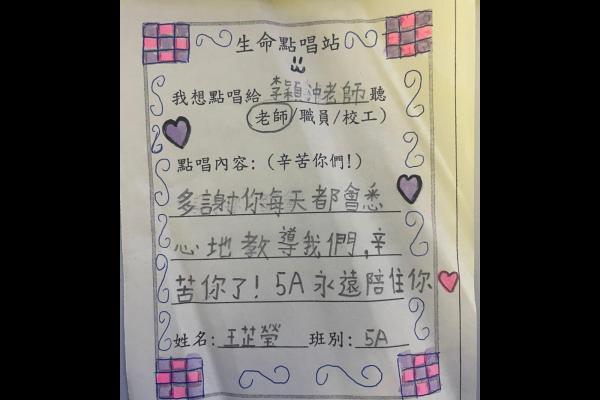 生命點唱站
我想點唱給 李穎沖老師 聽
(老師/職員/校工)
點唱內容:(辛苦你們!)
多謝你每天都會悉
心地教導我們,辛
苦你了! 5A永遠陪住你
姓名: 王芷瑩 班別: 5A